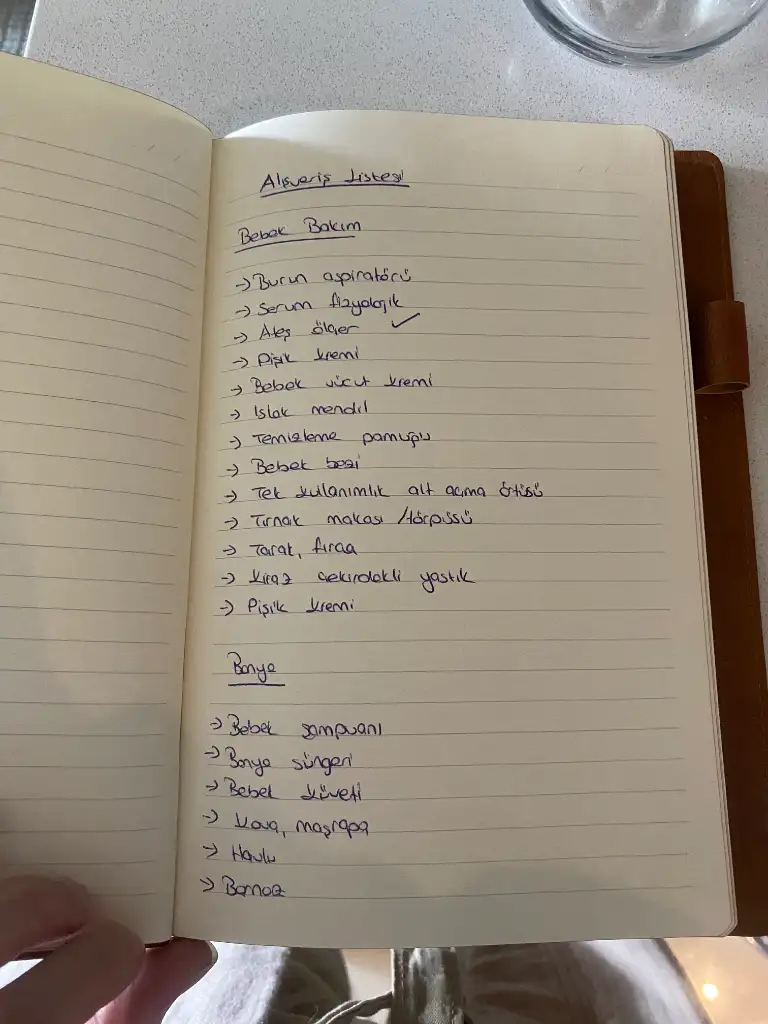 Alışveriş Listesi
Bebek Bakım
→ Burun aspiratörü
→ Serum fizyolojik
→ Ateş ölçer ✓
→ Pişik kremi
→ Bebek vücut kremi
→ Islak mendil
→ Temizleme pamuğu
→ Bebek bezi
→ Tek kullanımlık alt açma örtüsü
→ Tırnak makası /törpüsü
→ Tarak, fırça
→ Kiraz çekirdekli yastık
→ Pişik kremi
Banyo
→ Bebek şampuanı
→ Banyo süngeri
→ Bebek küveti
→ Kova, maşrapa
→ Havlu
→ Bornoz